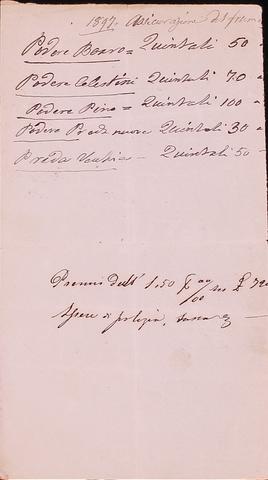 1897. Assicurazione del
Podere Basso = Quintali 50 a
Podere Celestini Quintali 70 a
Podere Pino = Quintali 100 a
Podere Prada nuova Quintali 30 a
Prada Vecchia — Quintali 50 —
Premio dell' 1,50
Spese di polizia, tassa